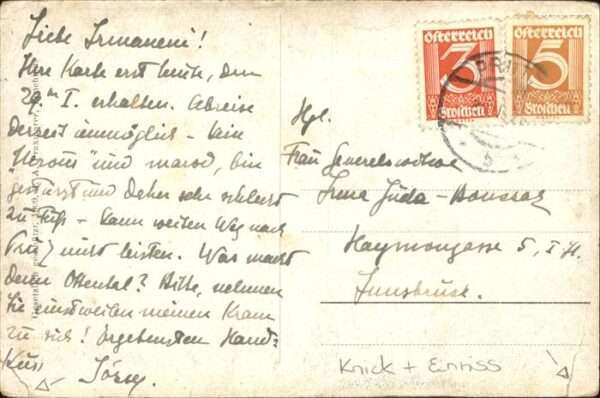 Liebe Irmaneni!
Ihre Karte erst heute, den
29.ten I. erhalten. Abreise
derzeit unmöglich – kein
"Heros" und marod, bin
gestürzt und daher sehr schlecht
zu Fuß – kann weiten Weg nach
nicht leisten. Was macht
denn Ottental? Bitte, nehmen
Sie einstweilen meinen Kram
zu sich! Ergebensten Hand-
Kuss József.
Österreich
3
Groschen
Österreich
5
Groschen
Hgl.
Frau Generalswitwe
Irma Juda-
Haymongasse 5, I. St.
Innsbruck.
Knick + Einriss